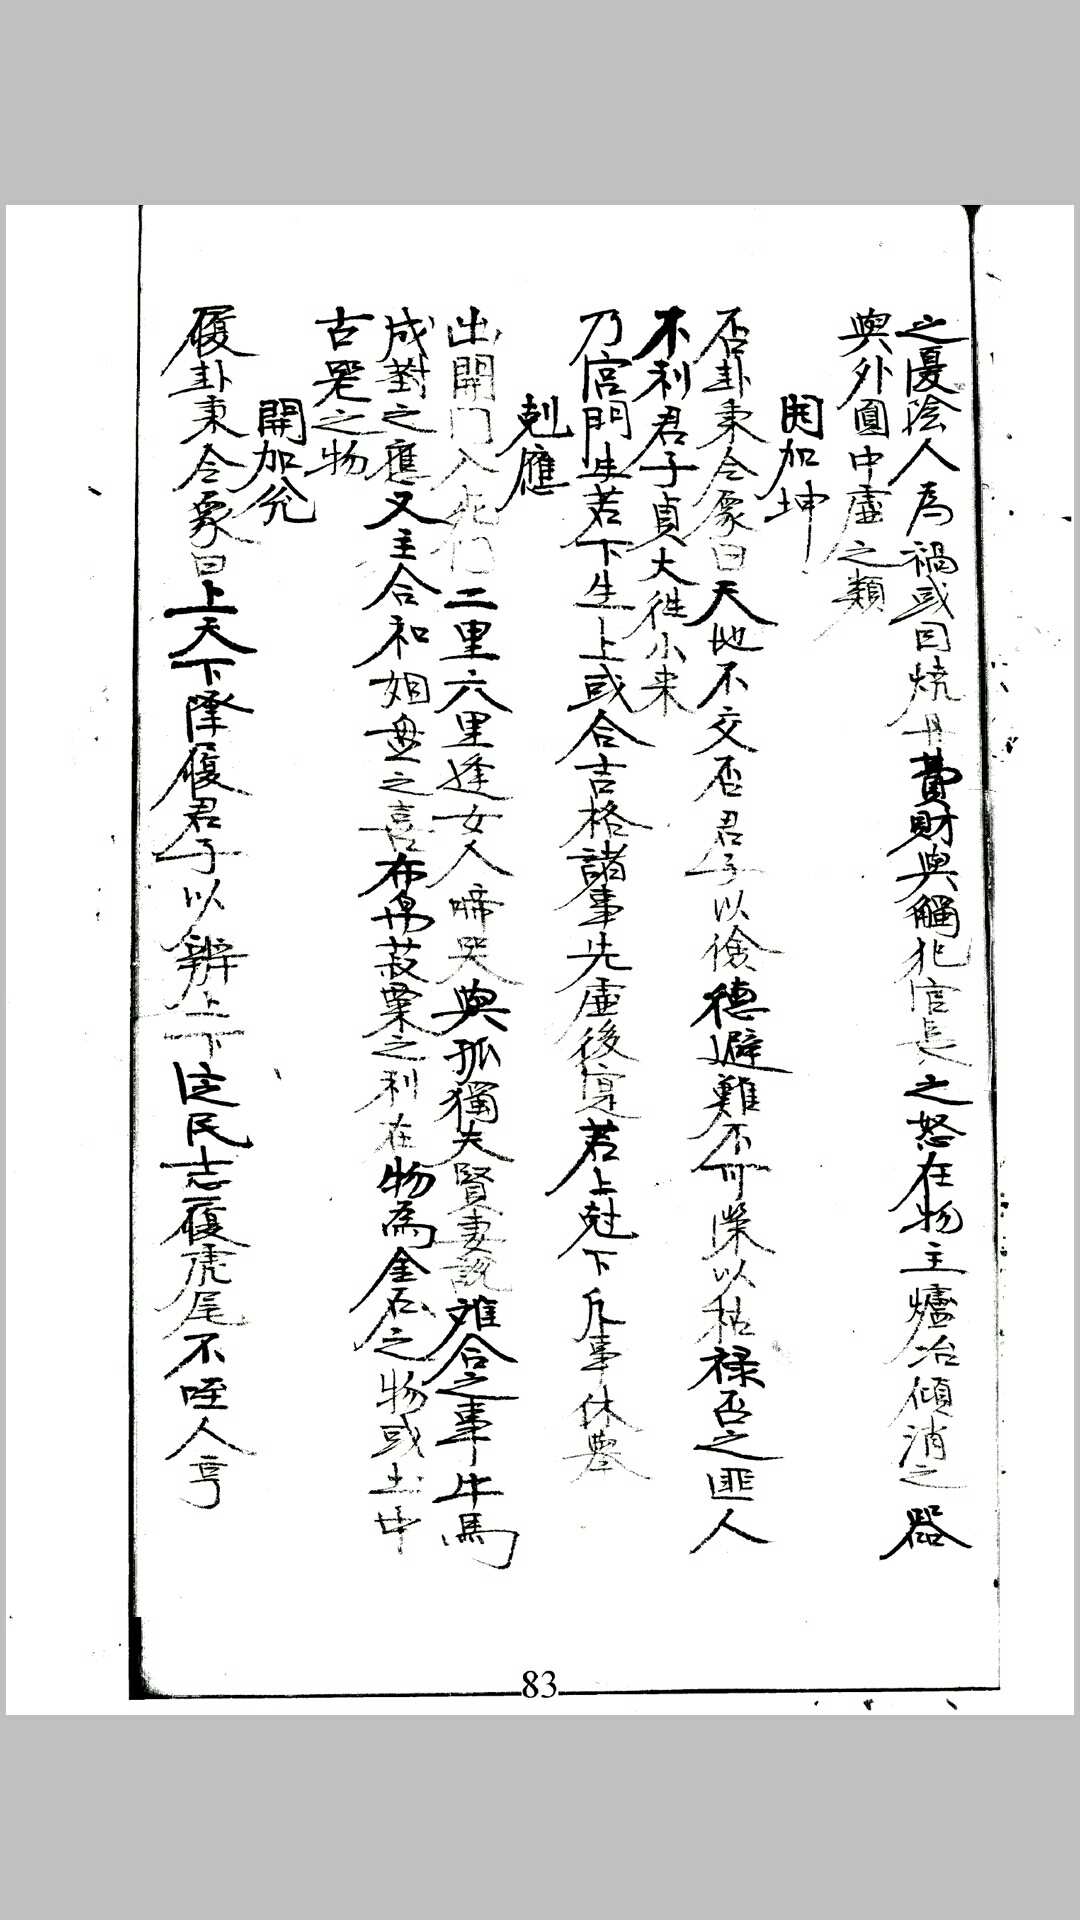 之優陰人為禍或因燒丹費財與觸犯官長之怒在物主爐冶傾消之器
與外圓中虛之類
開加坤
否卦秉令象曰天地不交否君子以儉德避難不可榮以祿否之匪人
不利君子貞大徃小来
乃宮門生若下生上或合吉格諸事先虛後寔若上尅下斥事休舉
剋應
出開門入死門二里六里逢女人啼哭與孤獨夫賢妻説难合之事牛馬
成對之應又主合和姻之喜布帛菽粟之利在物為金石之物或土中
古器之物
開加兌
履卦秉令象曰上天下澤履君子以辨上下定民志履虎尾不咥人亨
83